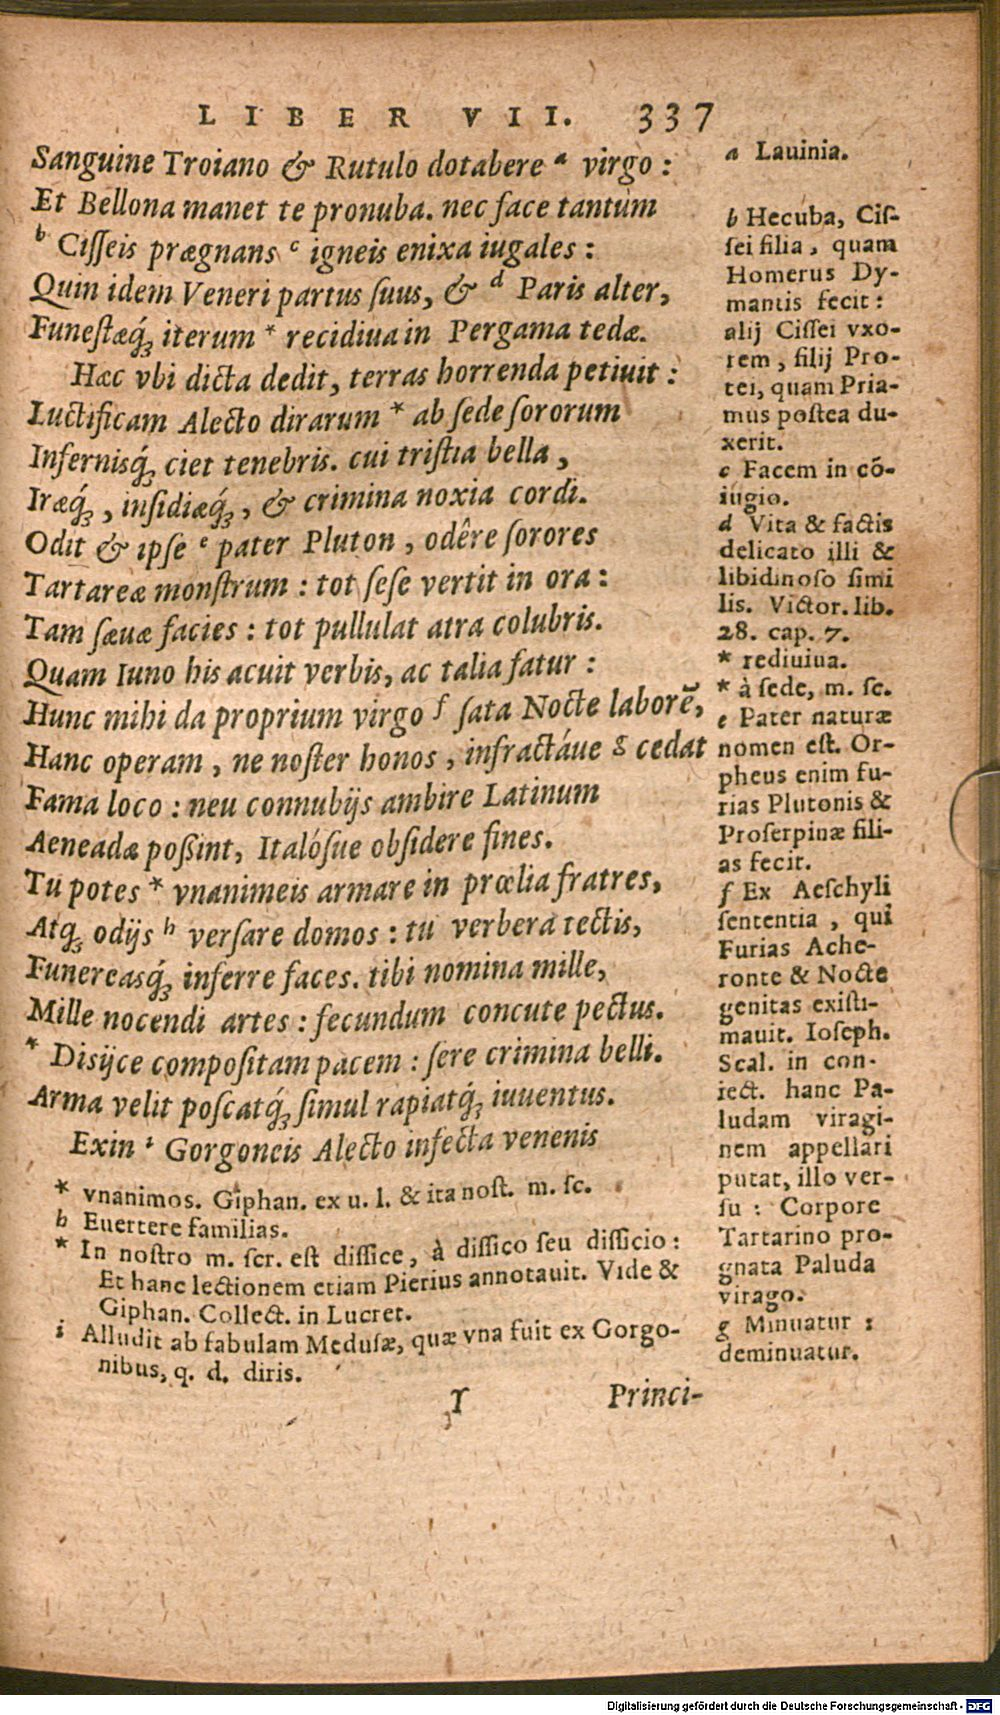 LIBER VII. 337
Sanguine Troiano & Rutulo dotabere ᵃ virgo :
Et Bellona manet te pronuba. nec face tantùm
ᵇ Cisseis prægnans ᶜ igneis enixa iugales :
Quin idem Veneri partus suus, & ᵈ Paris alter,
Funestæq́ꝫ iterum * recidiua in Pergama tedæ.
Hæc vbi dicta dedit, terras horrenda petiuit :
Luctificam Alecto dirarum * ab sede sororum
Infernisq́ꝫ ciet tenebris. cui tristia bella,
Iræq́ꝫ, insidiæq́ꝫ, & crimina noxia cordi.
Odit & ipse ᵉ pater Pluton, odêre sorores
Tartareæ monstrum : tot sese vertit in ora :
Tam sæuæ facies : tot pullulat atra colubris.
Quam Iuno his acuit verbis, ac talia fatur :
Hunc mihi da proprium virgo ᶠ sata Nocte laborē,
Hanc operam, ne noster honos, infractáue ᵍ cedat
Fama loco : neu connubijs ambire Latinum
Aeneadæ possint, Italósue obsidere fines.
Tu potes * vnanimeis armare in prœlia fratres,
Atqꝫ odijs ʰ versare domos : tu verbera tectis,
Funereasq́ꝫ inferre faces. tibi nomina mille,
Mille nocendi artes : fecundum concute pectus.
* Disijce compositam pacem : sere crimina belli.
Arma velit poscatq́ꝫ simul rapiatq́ꝫ iuuentus.
Exin ⁱ Gorgoneis Alecto infecta venenis
* vnanimos. Giphan. ex u. l. & ita nost. m. sc.
b Euertere familias.
* In nostro m. scr. est dissice, à dissico seu dissicio :
Et hanc lectionem etiam Pierius annotauit. Vide &
Giphan. Collect. in Lucret.
i Alludit ab fabulam Medusæ, quæ vna fuit ex Gorgo-
nibus, q. d. diris.
Y Princi-
a Lauinia.
b Hecuba, Cis-
sei filia, quam
Homerus Dy-
mantis fecit :
alij Cissei vxo-
rem, filij Pro-
tei, quam Pria-
mus postea du-
xerit.
c Facem in cō-
iugio.
d Vita & factis
delicato illi &
libidinoso simi
lis. Victor. lib.
28. cap. 7.
* rediuiua.
* à sede, m. sc.
e Pater naturæ
nomen est. Or-
pheus enim fu-
rias Plutonis &
Proserpinæ fili-
as fecit.
f Ex Aeschyli
sententia, qui
Furias Ache-
ronte & Nocte
genitas existi-
mauit. Ioseph.
Scal. in con-
iect. hanc Pa-
ludam viragi-
nem appellari
putat, illo ver-
su : Corpore
Tartarino pro-
gnata Paluda
virago.
g Minuatur :
deminuatur.
Digitalisierung gefördert durch die Deutsche Forschungsgemeinschaft - DFG